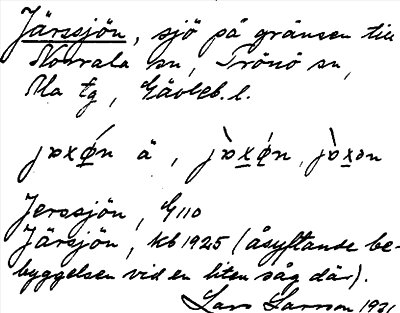 Järssjön, sjö på gränsen till
Norrala sn, Trönö sn,
Ala tg, Gävleb. l.
Jerssjön, G110
Järsjön, kb 1925 (åsyftande be-
byggelsen vid en liten såg där).
Lars Larsson 1931